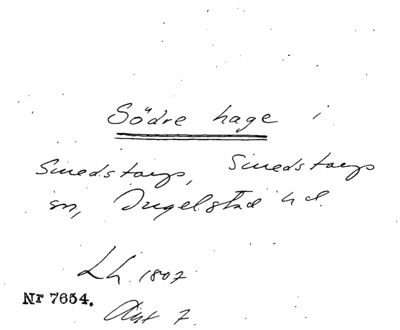 Södre hage i
Smedstorps, Smedstorps
sn, Ingelstad hd.
Lh 1807
Nr 7654.
Akt 7